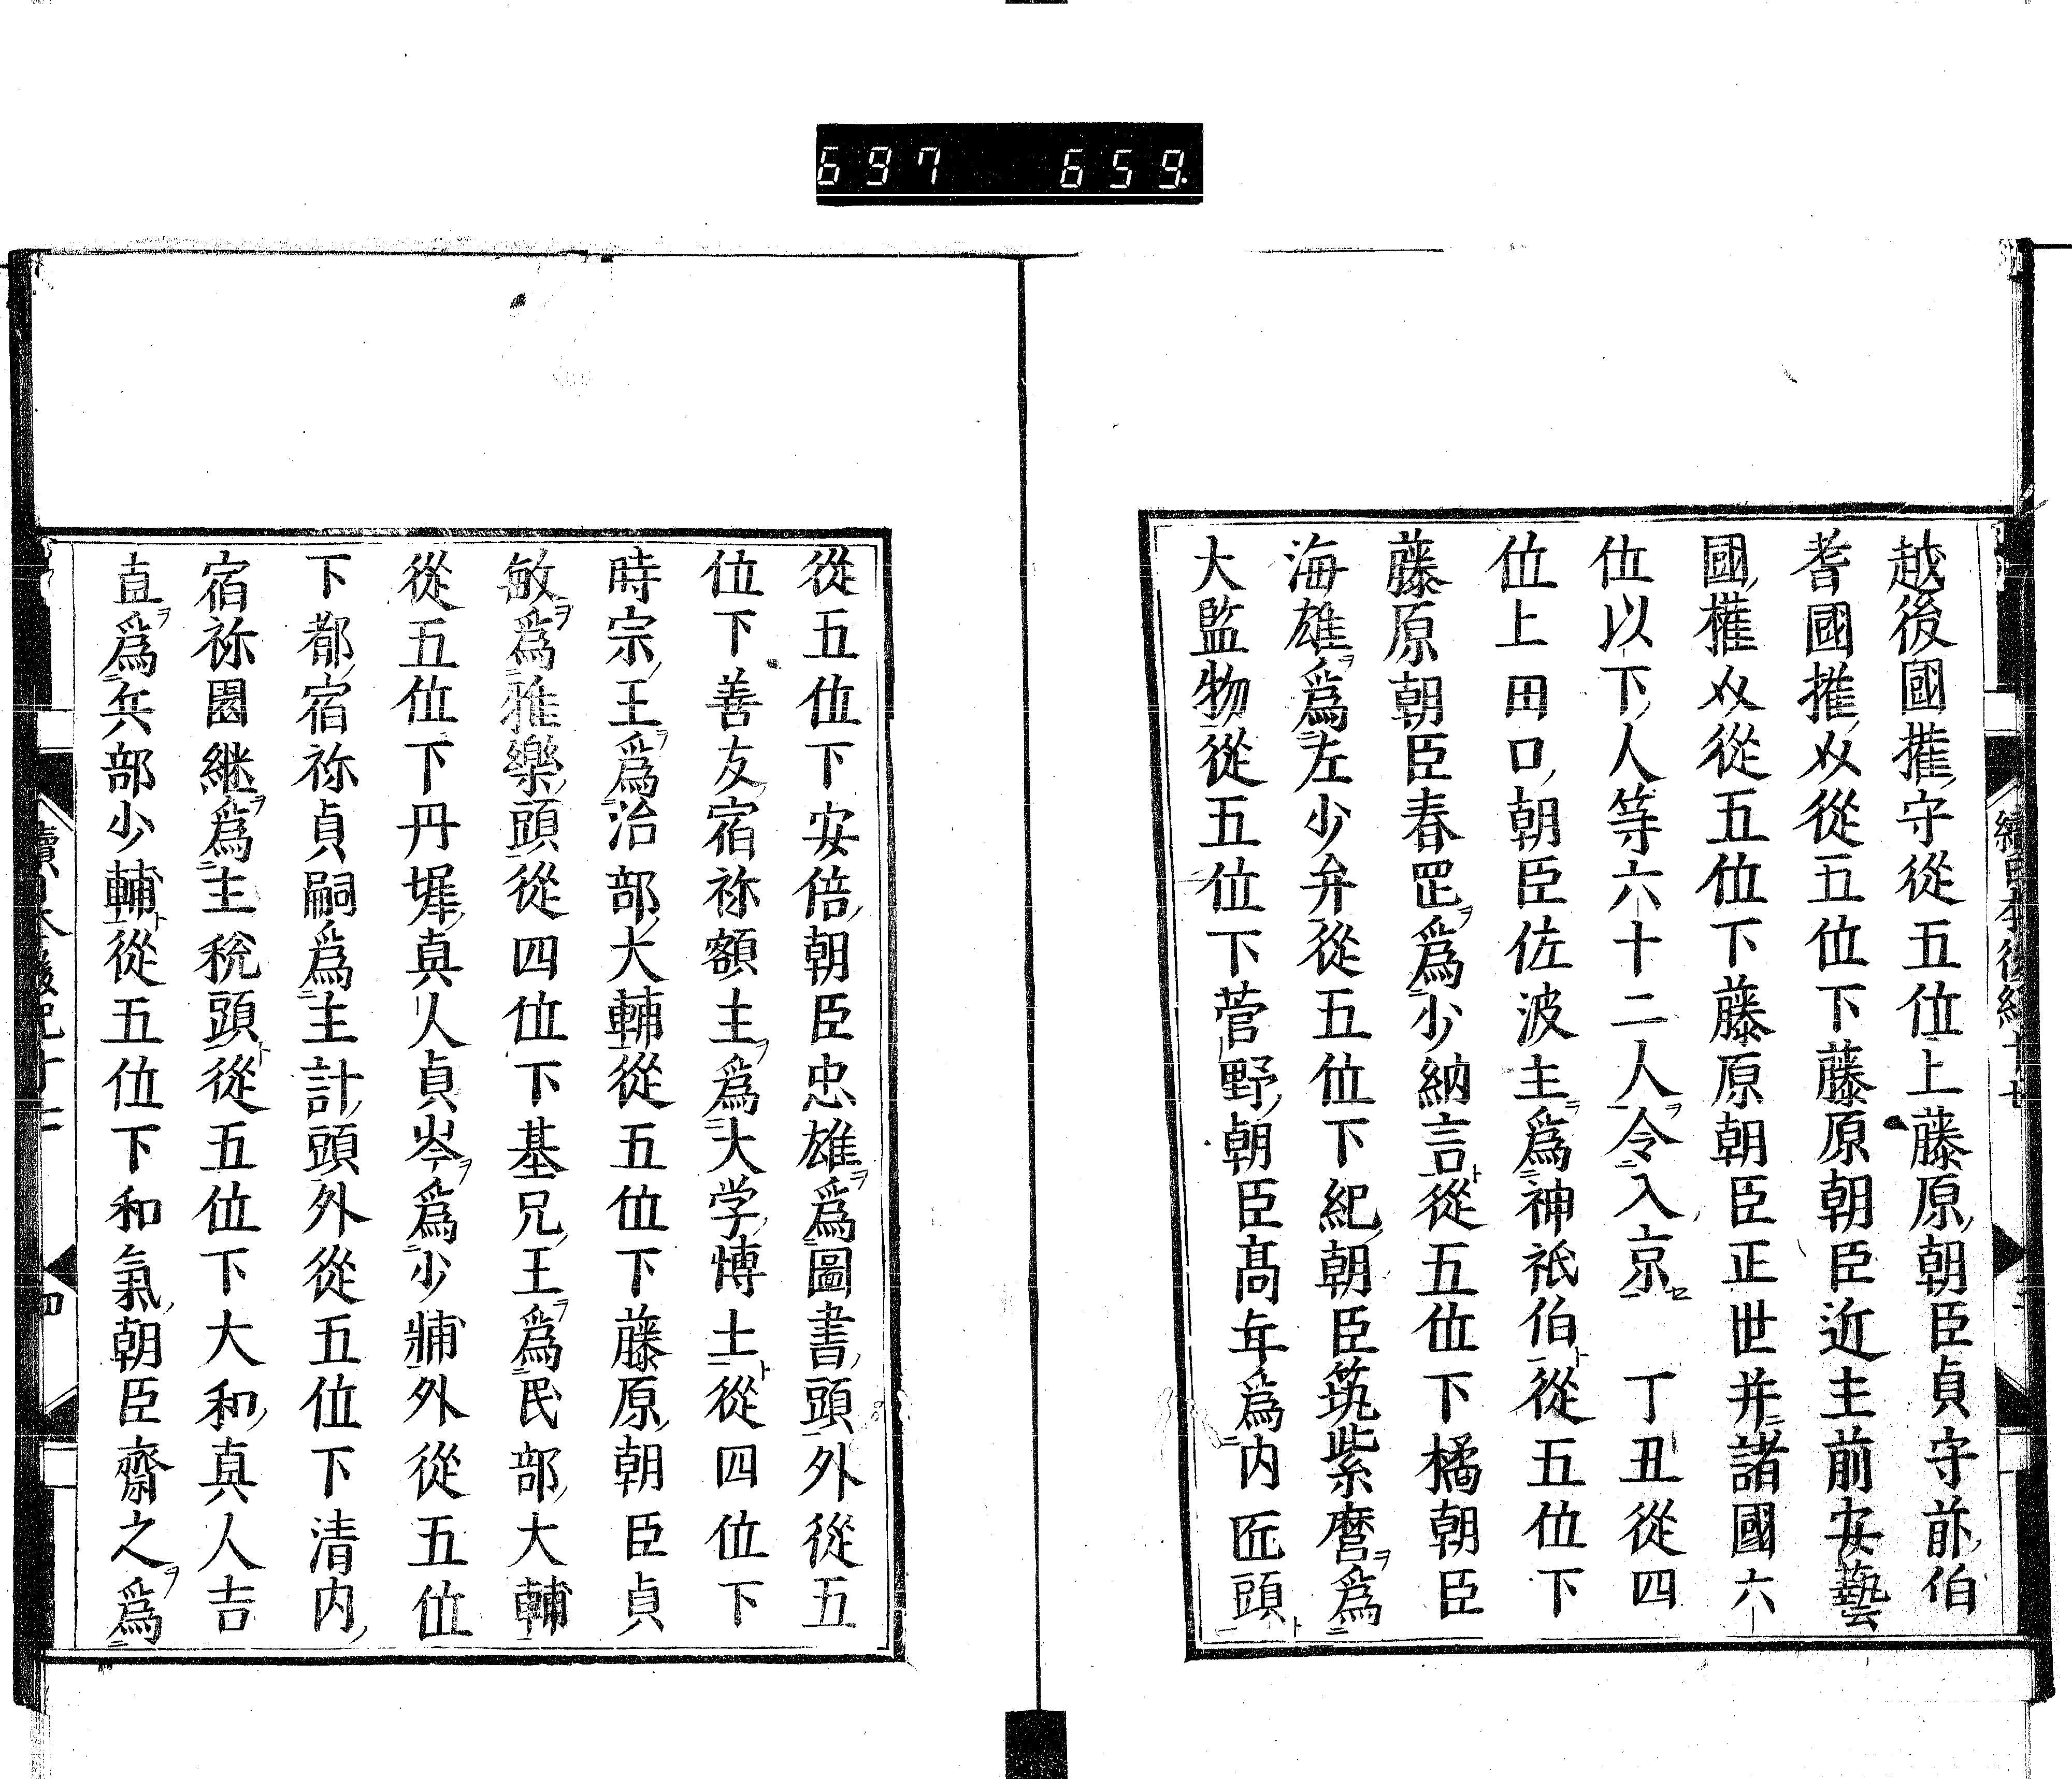 697 659.
越後國權守從五位上藤原朝臣貞守前伯
耆國權㸚從五位下藤原朝臣近主前安藝
國權㸚從五位下藤原朝臣正世并諸國六
位以下人等六十二人ヲ令入京 丁丑從四
位上田口朝臣佐波主ヲ爲神祇伯ト從五位下
藤原朝臣春罡ヲ爲少納言ト從五位下橘朝臣
海雄ヲ爲左少弁從五位下紀朝臣筑紫麿ヲ爲
大監物從五位下菅野朝臣髙年爲内匠頭ト
從五位下安倍朝臣忠雄ヲ爲圖書頭外從五
位下善友宿祢額主ヲ爲大学博士ト從四位下
時宗王ヲ爲治部大輔從五位下藤原朝臣貞
敏ヲ爲雅樂頭從四位下基兄王ヲ爲民部大輔
從五位下丹墀真人貞岑ヲ爲少輔外從五位
下都宿祢貞嗣爲主計頭外從五位下清内
宿祢國継ヲ爲主税頭ト從五位下大和真人吉
直ヲ爲兵部少輔ト從五位下和氣朝臣齋之ヲ爲
四